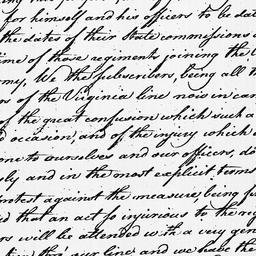 for himself and his officers to be dat
the dates of their State commissions
time of those regiments joining the
my, We the subscribers, being all
rs of the Virginia line now in can
of the great confusion which such a
d occasion, and of the injury which
one to ourselves and our officers, do
ly and in the most explicit terms
protest against the measure, being
d that an act so injurious to the rig
rs will be attended with a very gen
tion thro' our line, and we have the